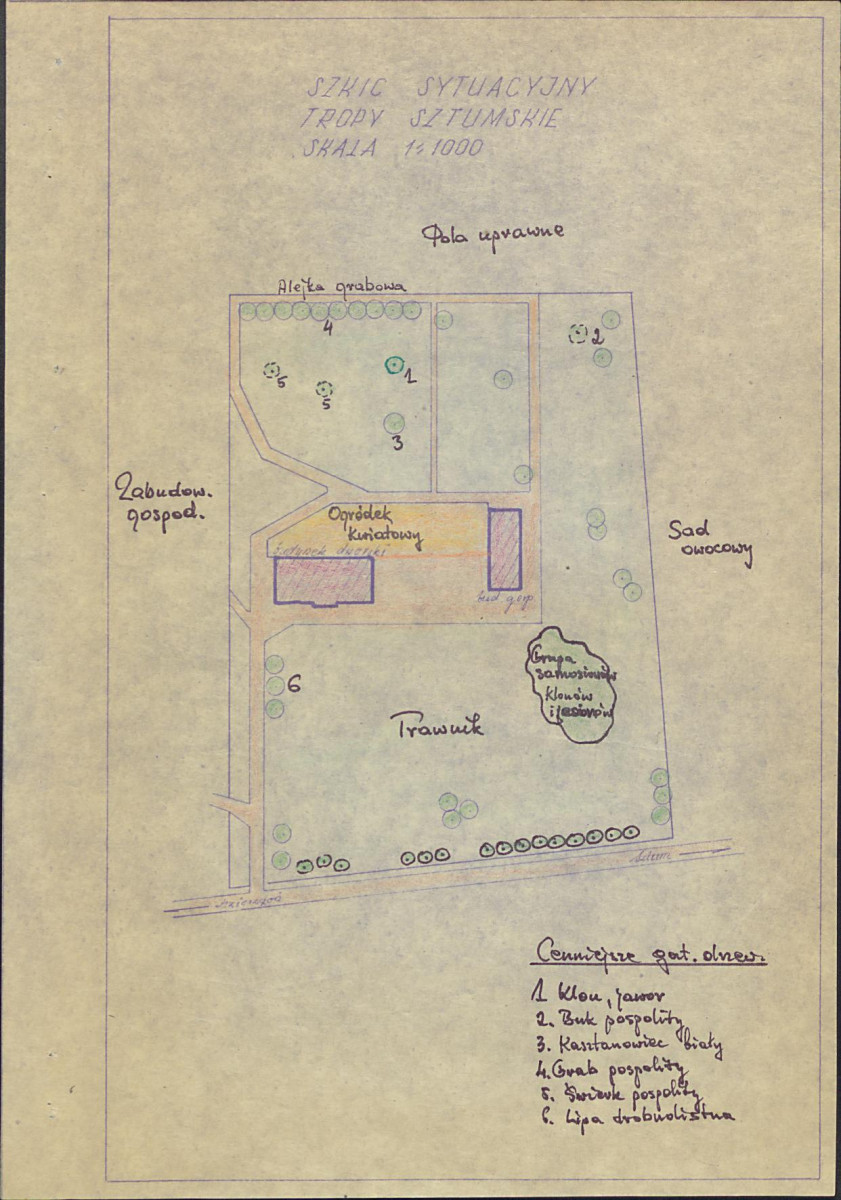 SZKIC SYTUACYJNY
TROPY SZTUMSKIE
SKALA 1:1000
Pola uprawne
Alejka grabowa
4
2
5
1
5
3
Zabudow.
gospod.
Ogródek
kwiatowy
Sad
owocowy
budynek dworski
bud gosp.
Grupa
samosiewów
klonów
i jesionów
6
Trawnik
Sztum
Cenniejsze gat. drzew.
1 Klon, jawor
2. Buk pospolity
3. Kasztanowiec biały
4. Grab pospolity
5. Świerk pospolity
6. Lipa drobnolistna